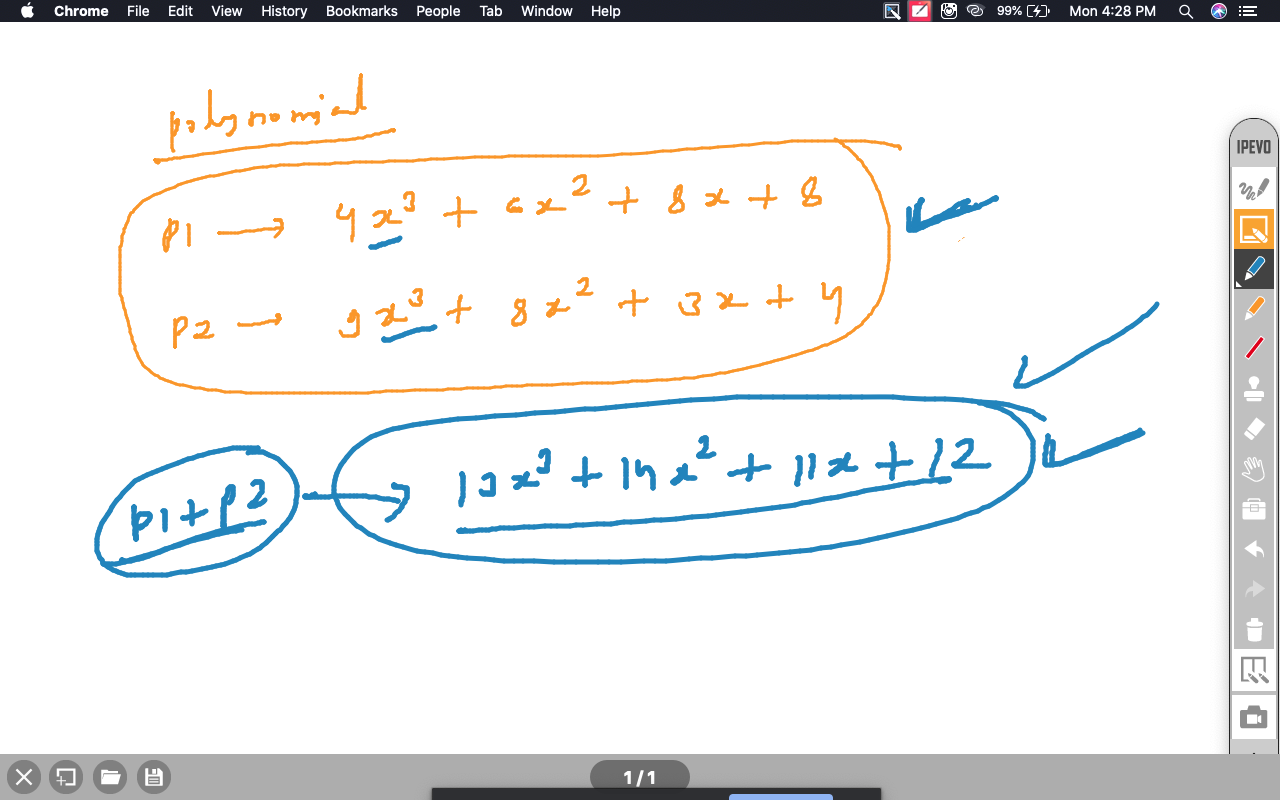 Chrome File Edit View History Bookmarks People Tab Window Help 99% Mon 4:28 PM
polynomial
IPEVO
p1 → 4x³ + 6x² + 8x + 8
p2 → 9x³ + 8x² + 3x + 4
p1+p2 → 13x³ + 14x² + 11x + 12
1/1